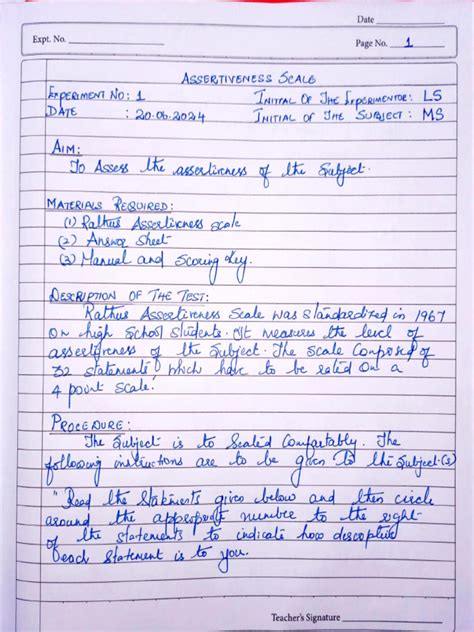 Date
Expt. No.
Page No. 1
ASSERTIVENESS SCALE
EXPERIMENT NO: 1 INITIAL OF THE EXPERIMENTOR: LS
DATE : 20.06.2024 INITIAL OF THE SUBJECT: MS
AIM:
To Assess the assertiveness of the Subject.
MATERIALS REQUIRED:
(1) Rathus Assertiveness scale
(2) Answer Sheet
(3) Manual and Scoring Key.
DESCRIPTION OF THE TEST:
Rathus Assertiveness Scale was standardized in 1967
on high School students. It measures the level of
assertiveness of the Subject. The Scale Composed of
32 statements which have to be rated on a
4 point Scale.
PROCEDURE:
The Subject is to Seated Comfortably. The
following instructions are to be given to the Subject(s)
"Read the Statements given below and then circle
around the appropriate number to the right
of the statements to indicate how descriptive
each statement is to you.
Teacher's Signature